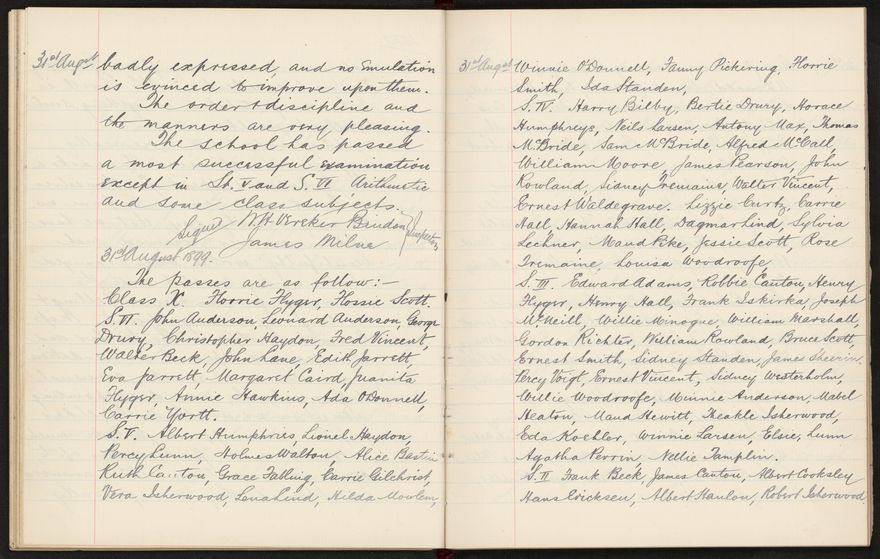 31st Augst badly expressed, and no emulation
is evinced to improve upon them.
The order & discipline and
the manners are very pleasing.
The school has passed
a most successful examination
except in St. V and S. VI Arithmetic
and some class subjects.
Signed W H Vereker Bindon } Inspectors
James Milne
31st August 1899.
The passes are as follow:-
Class X. Florrie Flyger, Flossie Scott.
S. VI. John Anderson, Leonard Anderson, George
Drury, Christopher Haydon, Fred Vincent,
Walter Beck, John Lane, Edith Jarrett,
Eva Jarrett, Margaret Caird, Juanita
Flyger, Annie Hawkins, Ada O'Donnell,
Carrie Yortt.
S. V. Albert Humphries, Lionel Haydon,
Percy Lunn, Holmes Walton, Alice Bastin
Ruth Canton, Grace Falling, Carrie Gilchrist,
Vera Isherwood, Lena Lind, Hilda Mowlem,
31st Augst Winnie O'Donnell, Fanny Pickering, Florrie
Smith, Ida Standen,
S. IV. Harry Bilby, Bertie Drury, Horace
Humphreys, Neils Larsen, Antony Max, Thomas
McBride, Sam McBride, Alfred McCall,
William Moore, James Pearson, John
Rowland, Sidney Tremaine, Walter Vincent,
Ernest Waldegrave. Lizzie Curtz, Carrie
Hall, Hannah Hall, Dagmar Lind, Sylvia
Lechner, Maud Peke, Jessie Scott, Rose
Tremaine, Louisa Woodroofe,
S. III. Edward Adams, Robbie Canton, Henry
Flyger, Henry Hall, Frank Iskirka, Joseph
McNeill, Willie Minogue, William Marshall,
Gordon Richter, William Rowland, Bruce Scott,
Ernest Smith, Sidney Standen, James Sheerin.
Percy Voigt, Ernest Vincent, Sidney Westerholm,
Willie Woodroofe, Minnie Anderson, Mabel
Heaton, Maud Hewitt, Theakle Isherwood,
Eda Koehler, Winnie Larsen, Elsie, Lunn
Agatha Perrin, Nellie Tamplin.
S. II Frank Beck, James Canton, Albert Cooksley
Hans Ericksen, Albert Hanlon, Robert Isherwood